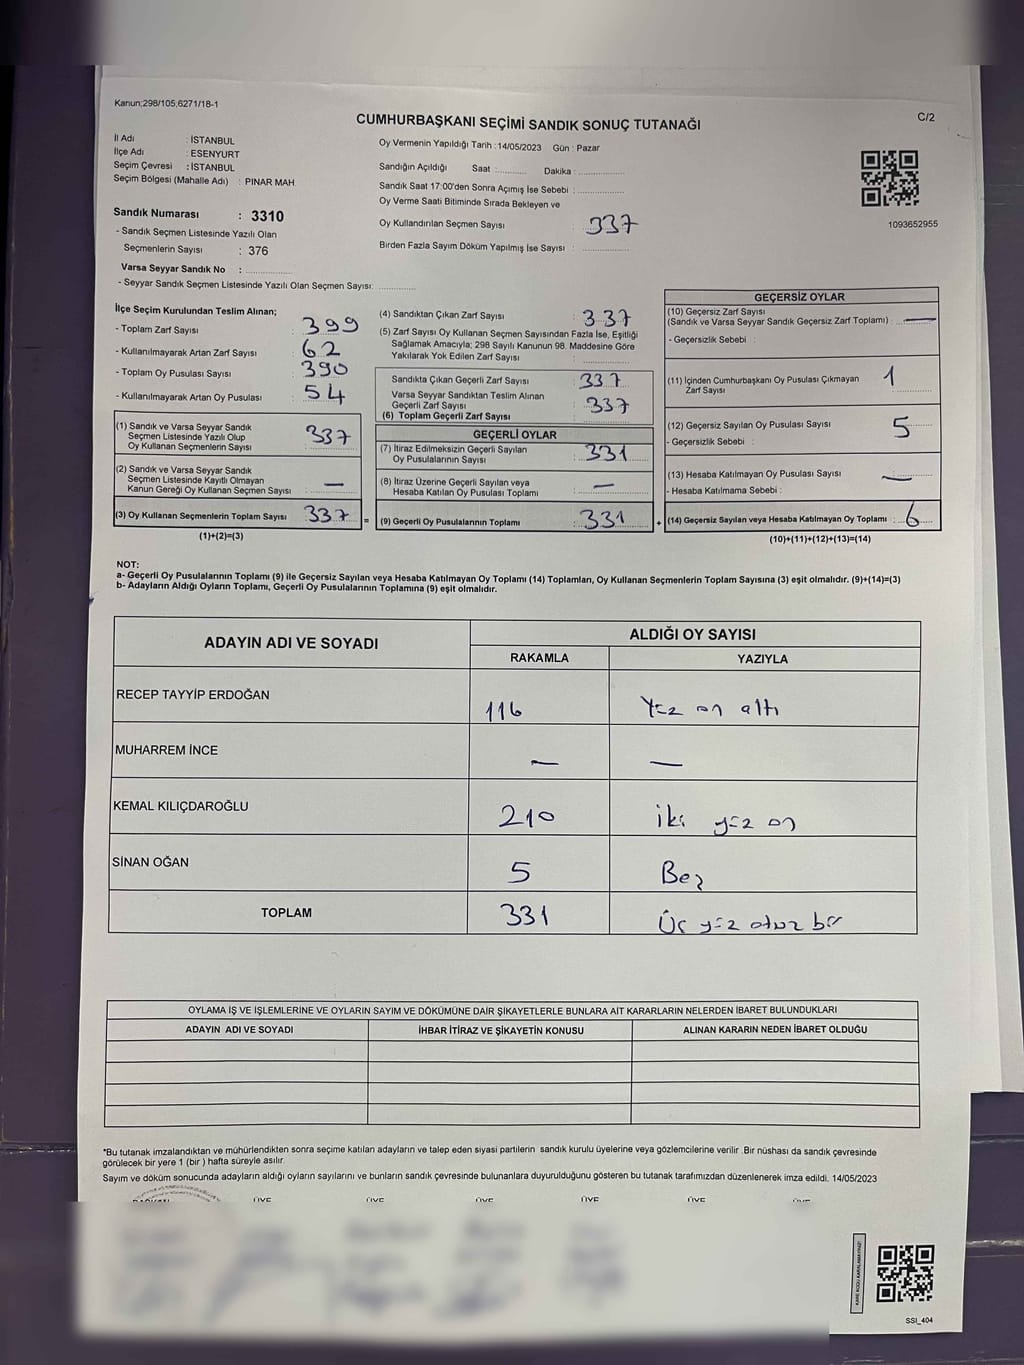 Kanun;298/105,6271/18-1
C/2
CUMHURBAŞKANI SEÇİMİ SANDIK SONUÇ TUTANAĞI
İl Adı : İSTANBUL
İlçe Adı : ESENYURT
Seçim Çevresi : İSTANBUL
Seçim Bölgesi (Mahalle Adı) : PINAR MAH.
Oy Vermenin Yapıldığı Tarih : 14/05/2023 Gün : Pazar
Sandığın Açıldığı Saat ............ Dakika : ............
Sandık Saat 17:00'den Sonra Açımış İse Sebebi : ............
Oy Verme Saati Bitiminde Sırada Bekleyen ve
Oy Kullandırılan Seçmen Sayısı : 337
Birden Fazla Sayım Döküm Yapılmış İse Sayısı : ............
1093652955
Sandık Numarası : 3310
- Sandık Seçmen Listesinde Yazılı Olan
Seçmenlerin Sayısı : 376
Varsa Seyyar Sandık No : ............
- Seyyar Sandık Seçmen Listesinde Yazılı Olan Seçmen Sayısı: ............
İlçe Seçim Kurulundan Teslim Alınan;
- Toplam Zarf Sayısı 399
- Kullanılmayarak Artan Zarf Sayısı 62
- Toplam Oy Pusulası Sayısı 390
- Kullanılmayarak Artan Oy Pusulası 54
(1) Sandık ve Varsa Seyyar Sandık
Seçmen Listesinde Yazılı Olup
Oy Kullanan Seçmenlerin Sayısı 337
(2) Sandık ve Varsa Seyyar Sandık
Seçmen Listesinde Kayıtlı Olmayan
Kanun Gereği Oy Kullanan Seçmen Sayısı : —
(3) Oy Kullanan Seçmenlerin Toplam Sayısı 337
(1)+(2)=(3)
(4) Sandıktan Çıkan Zarf Sayısı : 337
(5) Zarf Sayısı Oy Kullanan Seçmen Sayısından Fazla İse, Eşitliği
Sağlamak Amacıyla; 298 Sayılı Kanunun 98. Maddesine Göre
Yakılarak Yok Edilen Zarf Sayısı : ............
Sandıkta Çıkan Geçerli Zarf Sayısı : 337
Varsa Seyyar Sandıktan Teslim Alınan
Geçerli Zarf Sayısı : 337
(6) Toplam Geçerli Zarf Sayısı
GEÇERLİ OYLAR
(7) İtiraz Edilmeksizin Geçerli Sayılan
Oy Pusulalarının Sayısı : 331
(8) İtiraz Üzerine Geçerli Sayılan veya
Hesaba Katılan Oy Pusulası Toplamı : —
= (9) Geçerli Oy Pusulalarının Toplamı : 331 +
GEÇERSİZ OYLAR
(10) Geçersiz Zarf Sayısı
(Sandık ve Varsa Seyyar Sandık Geçersiz Zarf Toplamı) : —
- Geçersizlik Sebebi :
(11) İçinden Cumhurbaşkanı Oy Pusulası Çıkmayan
Zarf Sayısı 1
(12) Geçersiz Sayılan Oy Pusulası Sayısı 5
- Geçersizlik Sebebi :
(13) Hesaba Katılmayan Oy Pusulası Sayısı —
- Hesaba Katılmama Sebebi :
(14) Geçersiz Sayılan veya Hesaba Katılmayan Oy Toplamı : 6
(10)+(11)+(12)+(13)=(14)
NOT:
a- Geçerli Oy Pusulalarının Toplamı (9) ile Geçersiz Sayılan veya Hesaba Katılmayan Oy Toplamı (14) Toplamları, Oy Kullanan Seçmenlerin Toplam Sayısına (3) eşit olmalıdır. (9)+(14)=(3)
b- Adayların Aldığı Oyların Toplamı, Geçerli Oy Pusulalarının Toplamına (9) eşit olmalıdır.
ADAYIN ADI VE SOYADI ALDIĞI OY SAYISI
RAKAMLA YAZIYLA
RECEP TAYYİP ERDOĞAN 116 Yüz on altı
MUHARREM İNCE — —
KEMAL KILIÇDAROĞLU 210 iki yüz on
SİNAN OĞAN 5 Beş
TOPLAM 331 Üç yüz otuz bir
OYLAMA İŞ VE İŞLEMLERİNE VE OYLARIN SAYIM VE DÖKÜMÜNE DAİR ŞİKAYETLERLE BUNLARA AİT KARARLARIN NELERDEN İBARET BULUNDUKLARI
ADAYIN ADI VE SOYADI İHBAR İTİRAZ VE ŞİKAYETİN KONUSU ALINAN KARARIN NEDEN İBARET OLDUĞU
*Bu tutanak imzalandıktan ve mühürlendikten sonra seçime katılan adayların ve talep eden siyasi partilerin sandık kurulu üyelerine veya gözlemcilerine verilir .Bir nüshası da sandık çevresinde
görülecek bir yere 1 (bir ) hafta süreyle asılır.
Sayım ve döküm sonucunda adayların aldığı oyların sayılarını ve bunların sandık çevresinde bulunanlara duyurulduğunu gösteren bu tutanak tarafımızdan düzenlenerek imza edildi. 14/05/2023
ÜYE ÜYE ÜYE ÜYE ÜYE
SSI_404